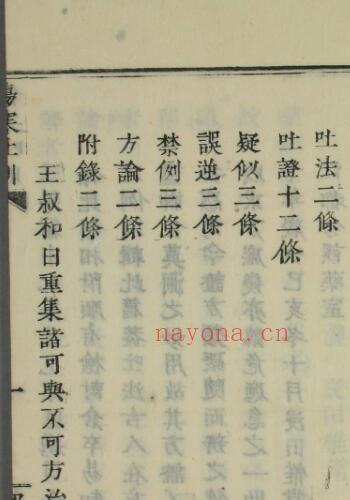 吐法二條
吐證十二條
疑似三條
誤逆三條
禁例三條
方論二條
附錄二條
王叔和曰重集諸可與不可方治
nayona.cn